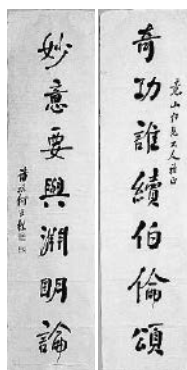 奇功誰續伯倫頌
妙意要與淵明論